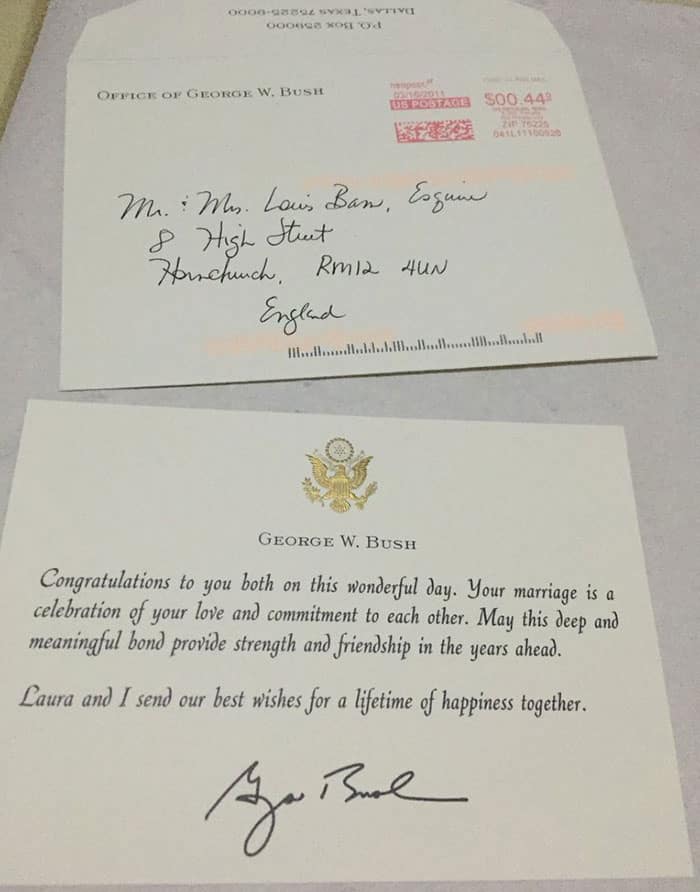 P.O. BOX 259000
DALLAS, TEXAS 75225-9000
OFFICE OF GEORGE W. BUSH
neopost
03/16/2011
US POSTAGE
$00.44
ZIP 75225
041L11100928
Mr. & Mrs. Louis Bass, Esquire
8 High Street
Hornchurch, RM12 4UN
England
GEORGE W. BUSH
Congratulations to you both on this wonderful day. Your marriage is a
celebration of your love and commitment to each other. May this deep and
meaningful bond provide strength and friendship in the years ahead.
Laura and I send our best wishes for a lifetime of happiness together.